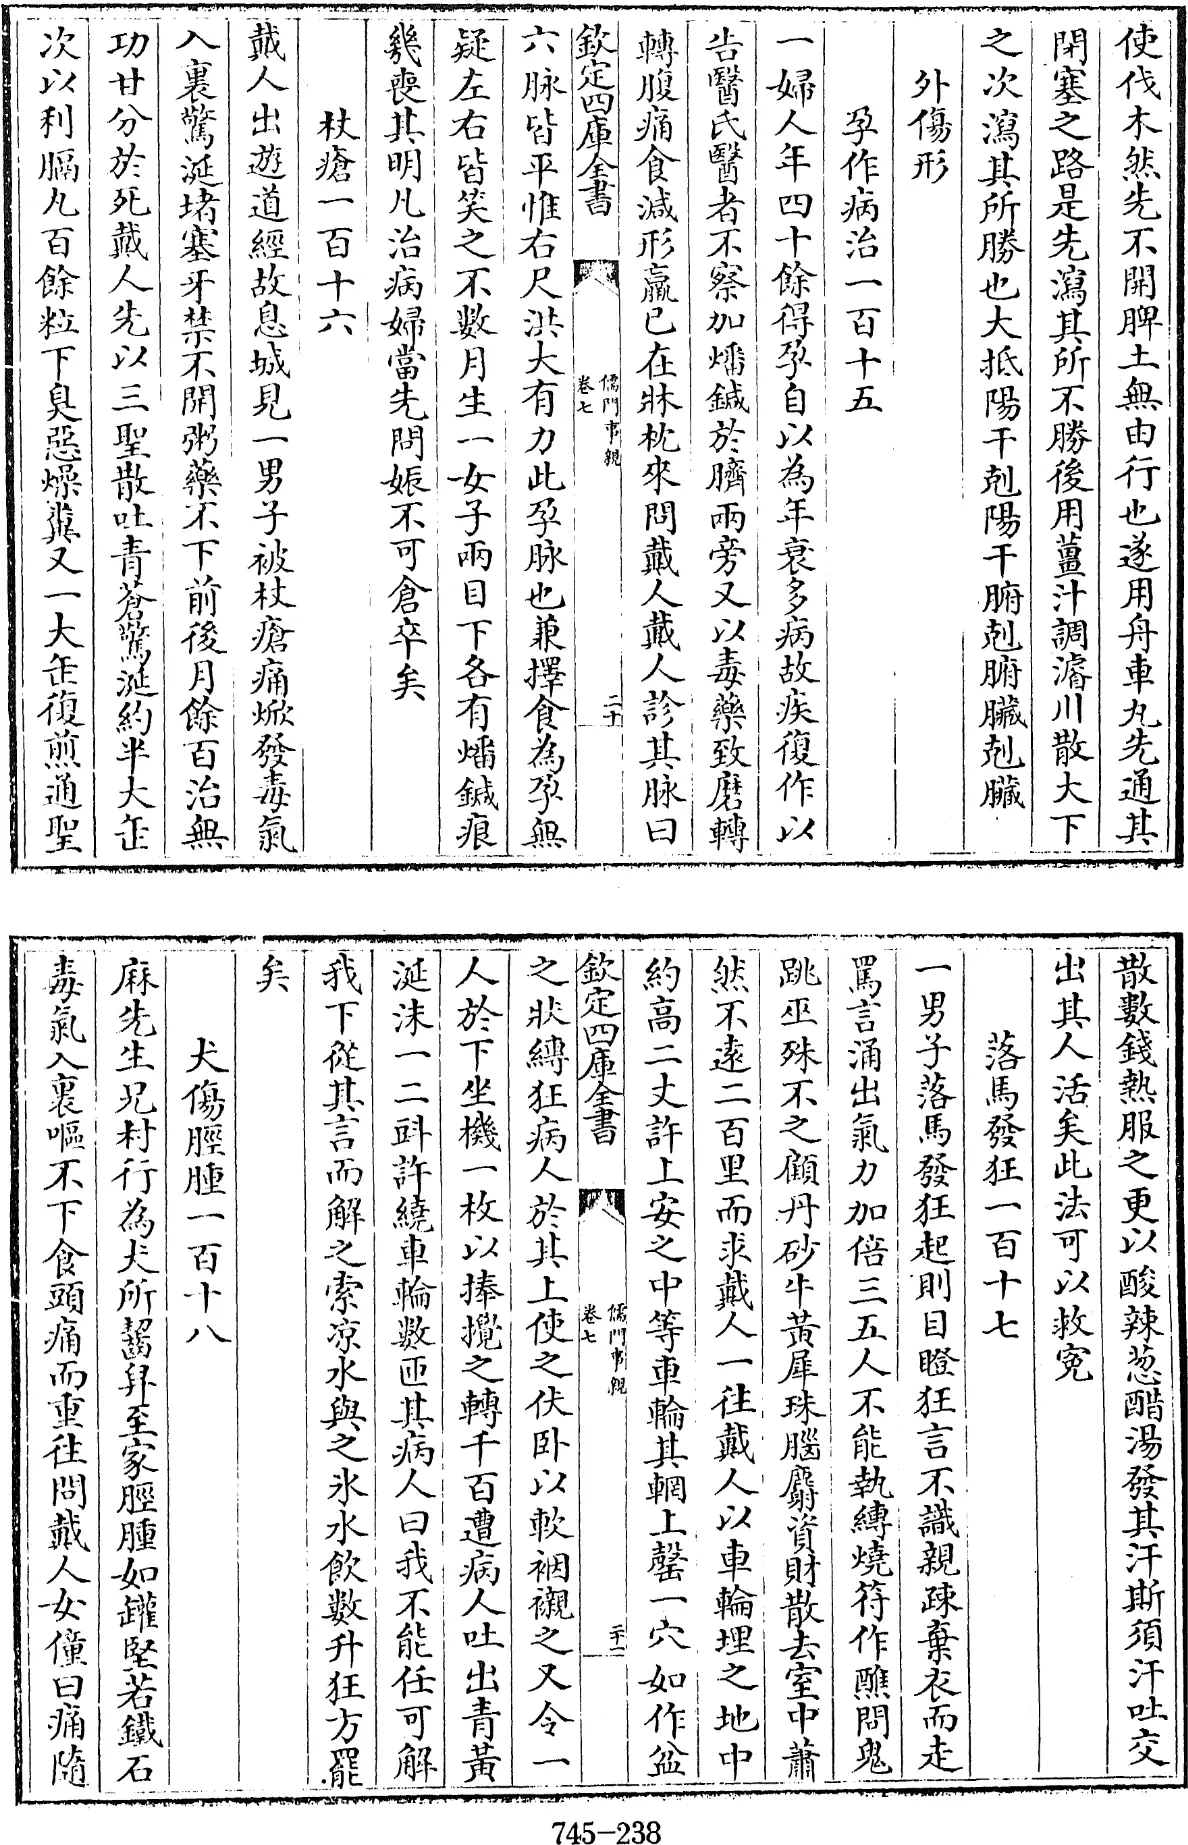 使伐木然先不開脾土無由行也遂用舟車丸先通其
閉塞之路是先瀉其所不勝後用薑汁調濬川散大下
之次瀉其所勝也大抵陽干剋陽干腑剋腑臟剋臟
外傷形
孕作病治一百十五
一婦人年四十餘得孕自以為年衰多病故疾復作以
告醫氏醫者不察加燔鍼於臍兩旁又以毒藥致磨轉
轉腹痛食減形羸已在牀枕來問戴人戴人診其脉曰
欽定四庫全書
儒門事親
卷七
二十
六脉皆平惟右尺洪大有力此孕脉也兼擇食為孕無
疑左右皆笑之不數月生一女子兩目下各有燔鍼痕
幾喪其明凡治病婦當先問娠不可倉卒矣
杖瘡一百十六
戴人出遊道經故息城見一男子被杖瘡痛焮發毒氣
入裏驚涎堵塞牙禁不開粥藥不下前後月餘百治無
功甘分於死戴人先以三聖散吐青蒼驚涎約半大缶
次以利膈丸百餘粒下臭惡燥糞又一大缶復煎通聖
散數錢熱服之更以酸辣葱醋湯發其汗斯須汗吐交
出其人活矣此法可以救寃
落馬發狂一百十七
一男子落馬發狂起則目瞪狂言不識親疎棄衣而走
罵言涌出氣力加倍三五人不能執縛燒符作醮問鬼
跳巫殊不之顧丹砂牛黃犀珠腦麝資財散去室中蕭
然不遠二百里而求戴人一往戴人以車輪埋之地中
約高二丈許上安之中等車輪其輞上鑿一穴如作盆
欽定四庫全書
儒門事親
卷七
二十一
之狀縛狂病人於其上使之伏卧以軟裀襯之又令一
人於下坐機一枚以捧攪之轉千百遭病人吐出青黃
涎沫一二㪷許繞車輪數匝其病人曰我不能任可解
我下從其言而解之索凉水與之氷水飲數升狂方罷
矣
犬傷脛腫一百十八
麻先生兄村行為犬所齧舁至家脛腫如罐堅若鐵石
毒氣入裏嘔不下食頭痛而重往問戴人女僮曰痛隨
745-238